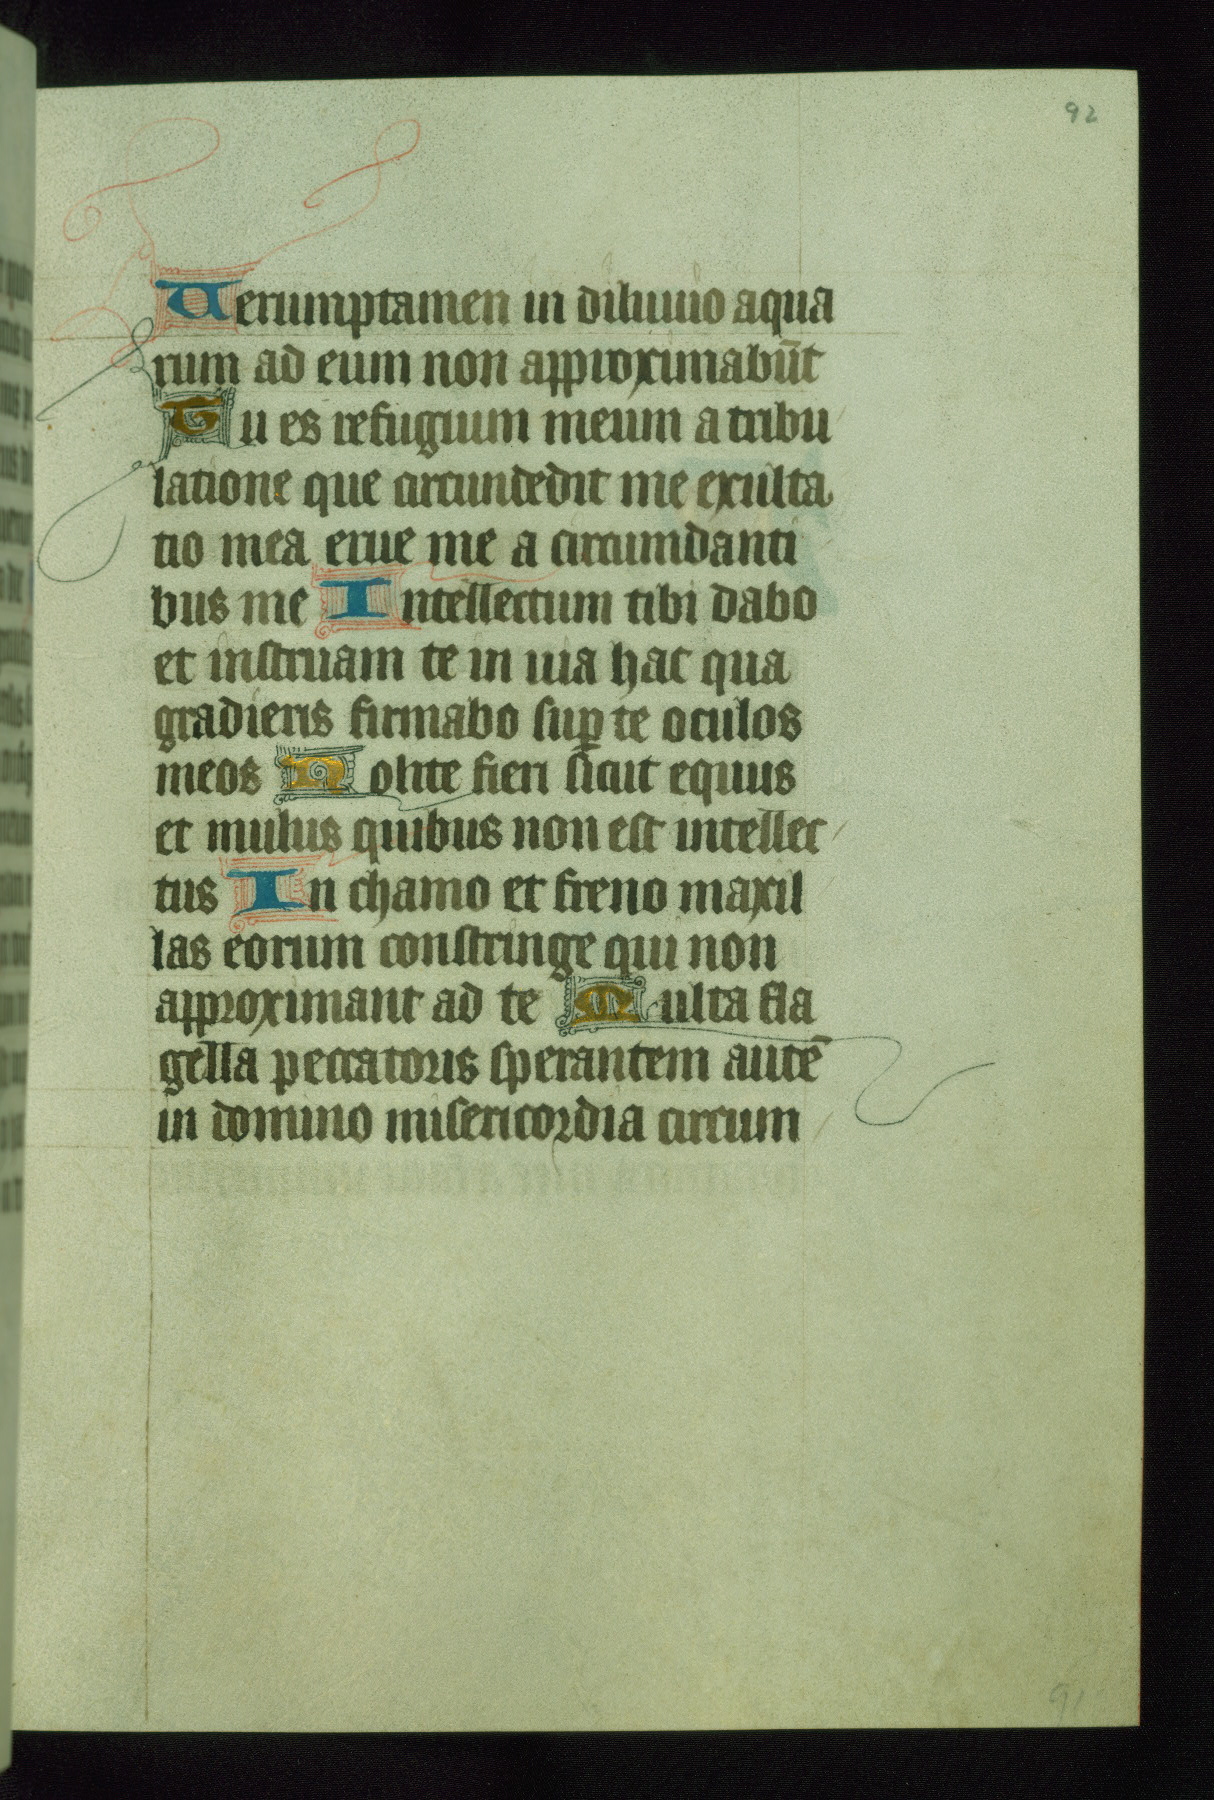 92
Uerumptamen in diluuio aqua
rum ad eum non approximabūt
Tu es refugium meum a tribu
latione que circundedit me exulta
tio mea erue me a circumdanti
bus me Intellectum tibi dabo
et instruam te in uia hac qua
gradieris firmabo sup̱ te oculos
meos Nolite fieri sicut equus
et mulus quibus non est intellec
tus In chamo et freno maxil
las eorum constringe qui non
approximant ad te Multa fla
gella peccatoris sperantem autē
in domino misericordia circum
91